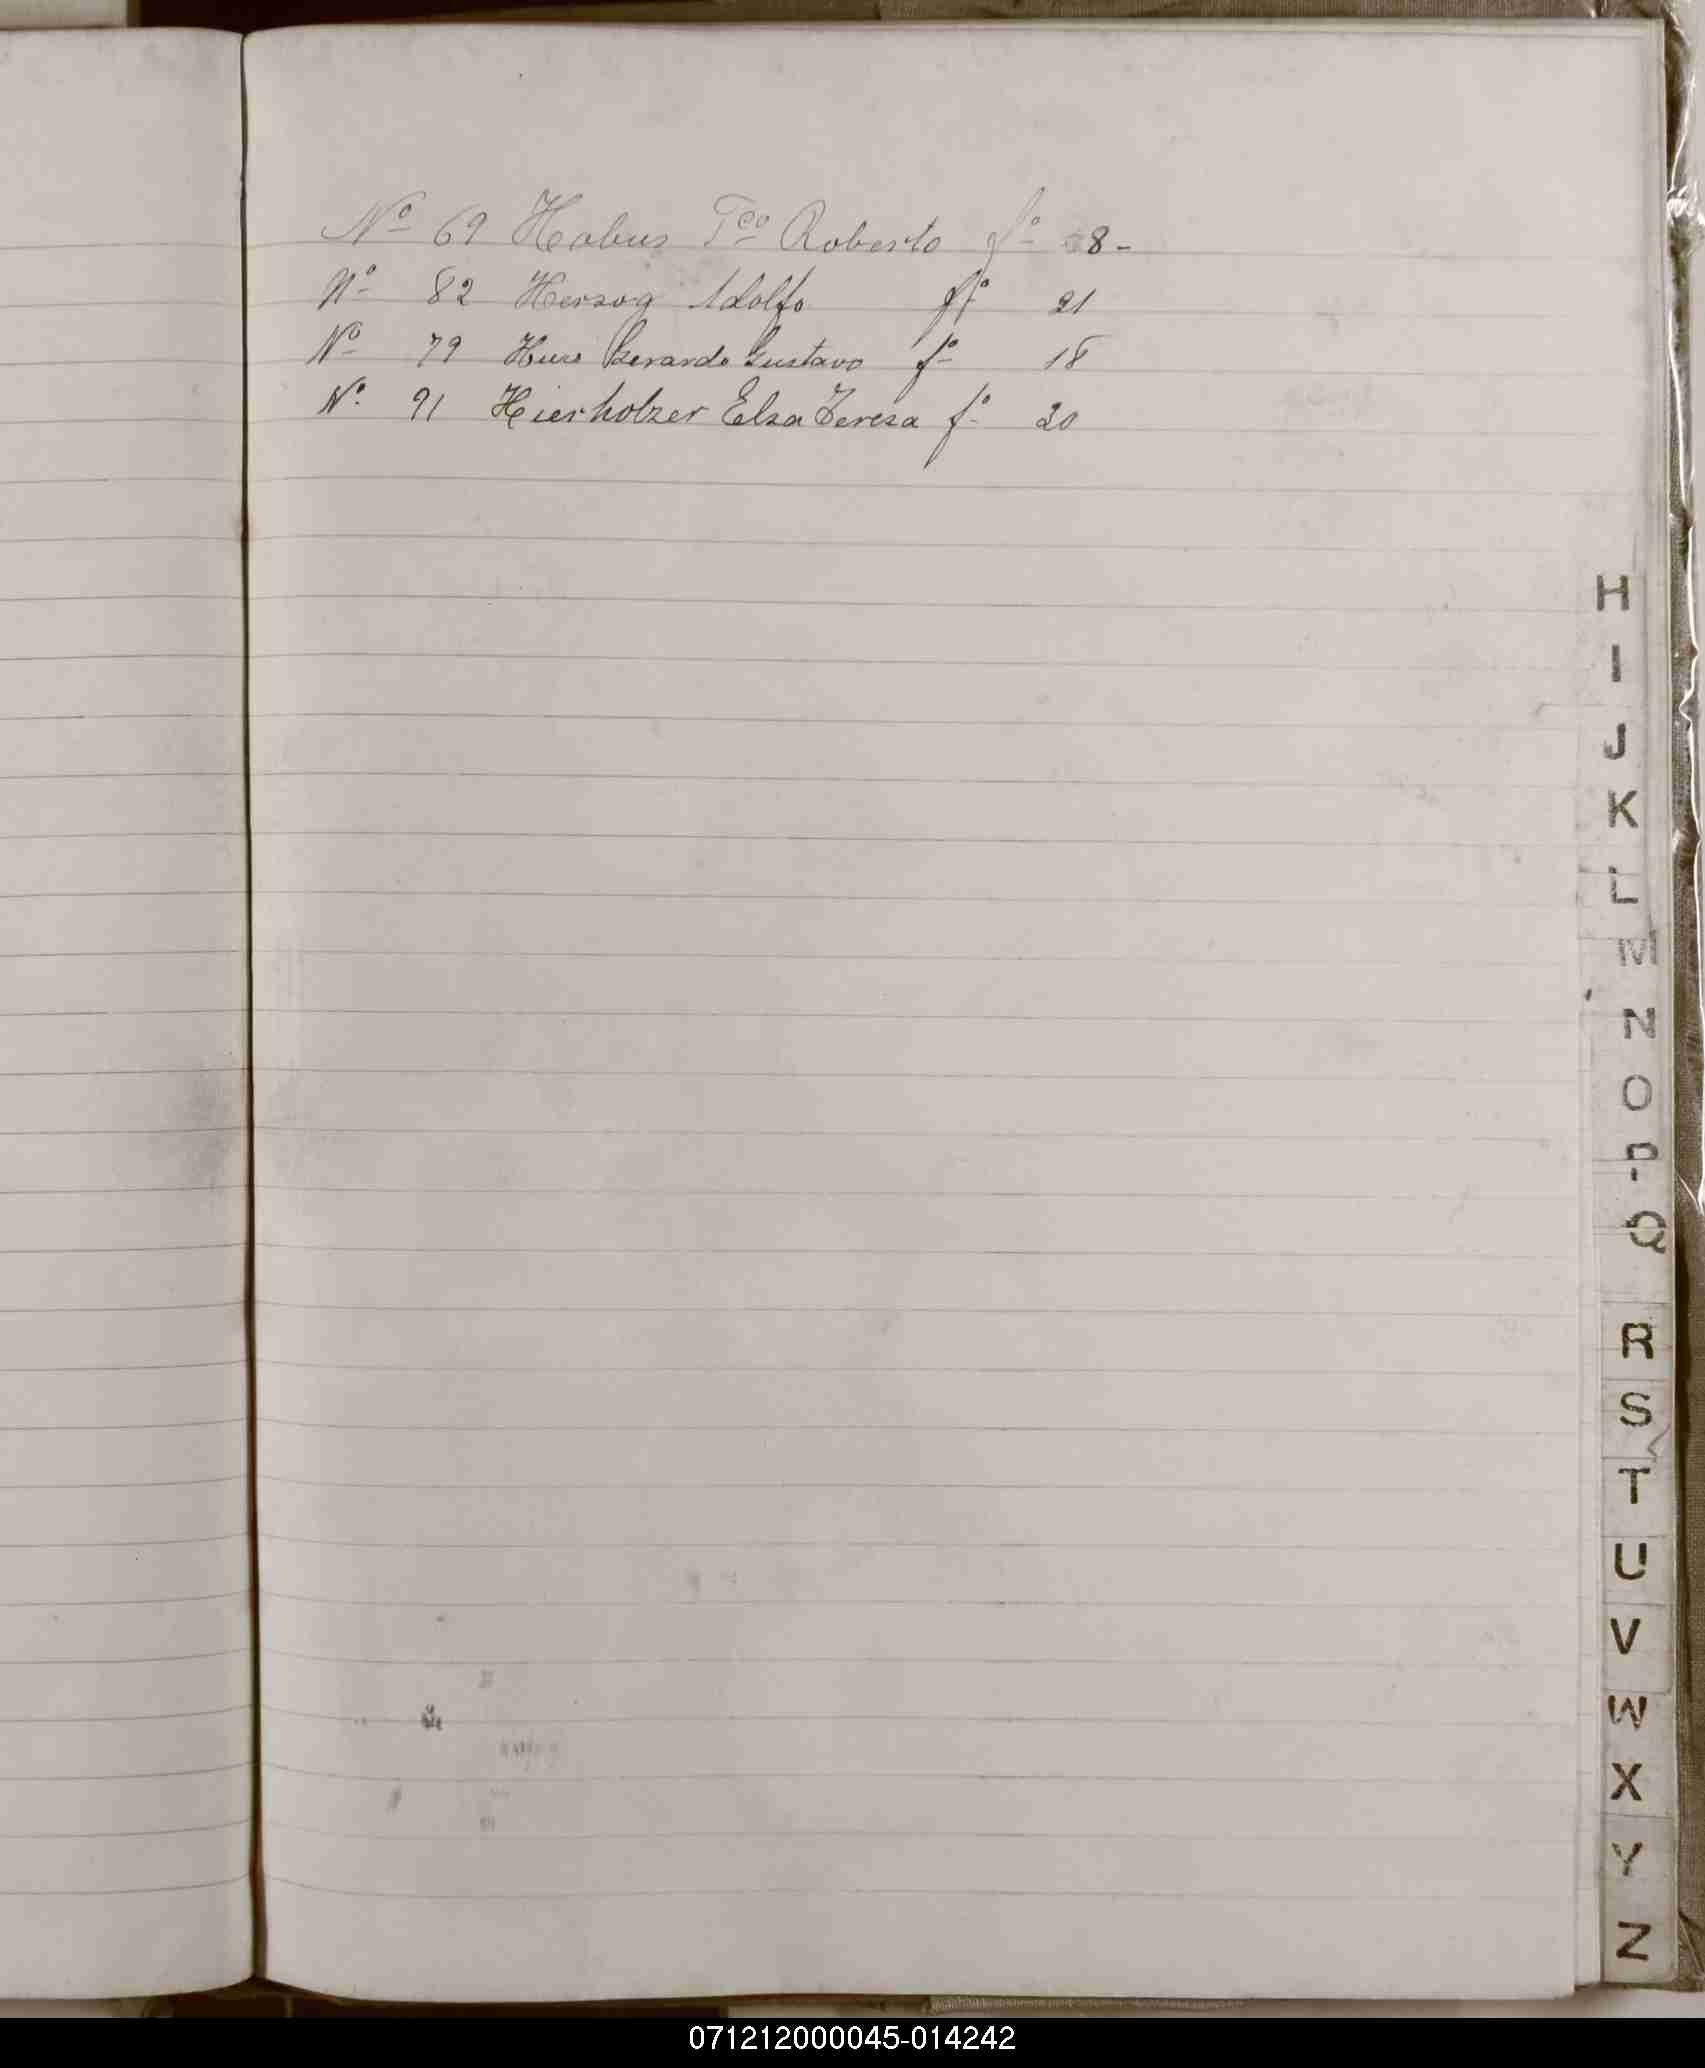 Nº 69 Habus Fco Roberto fº 8-
Nº 82 Herzog Adolfo fº 21
Nº 79 Gerardo Gustavo fº 18
Nº 91 Hierholzer Elsa Teresa fº 20
H
I
J
K
L
M
N
O
P
Q
R
S
T
U
V
W
X
Y
Z
071212000045-014242